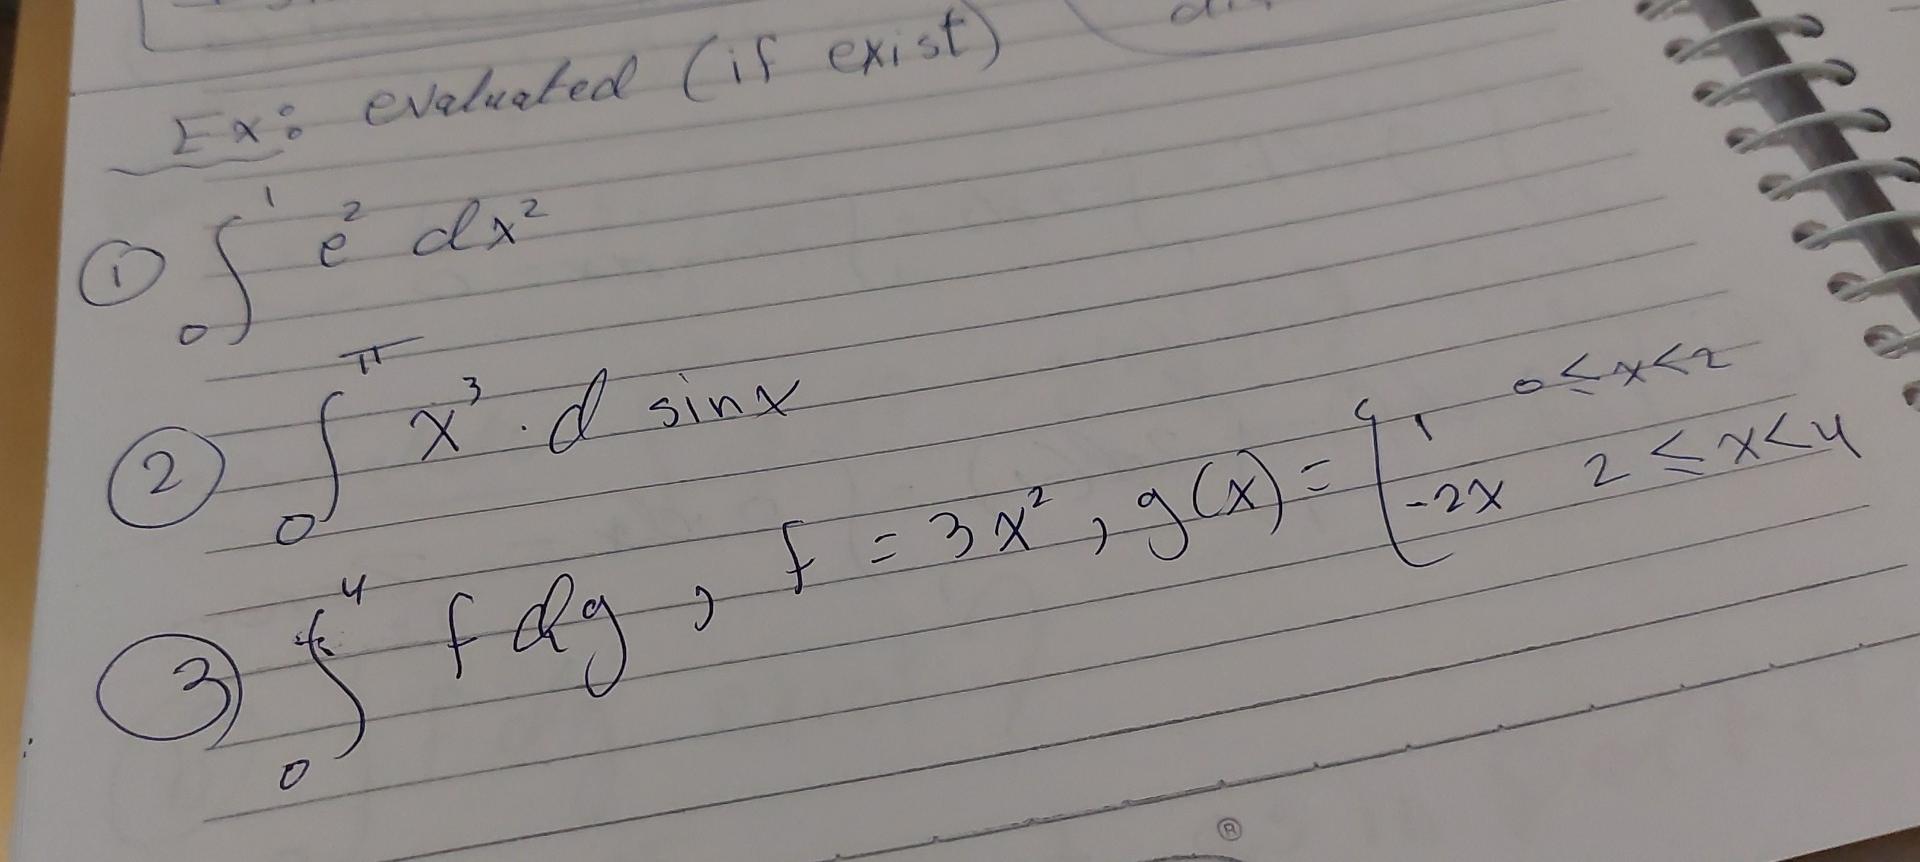 Ex: evaluated (if exist)
① ∫₀¹ e² dx²
② ∫₀^π x³ · d sinx
③ ∫₀⁴ f dg , f = 3x² , g(x) = { 1 0 ≤ x < 2
-2x 2 ≤ x < 4
®